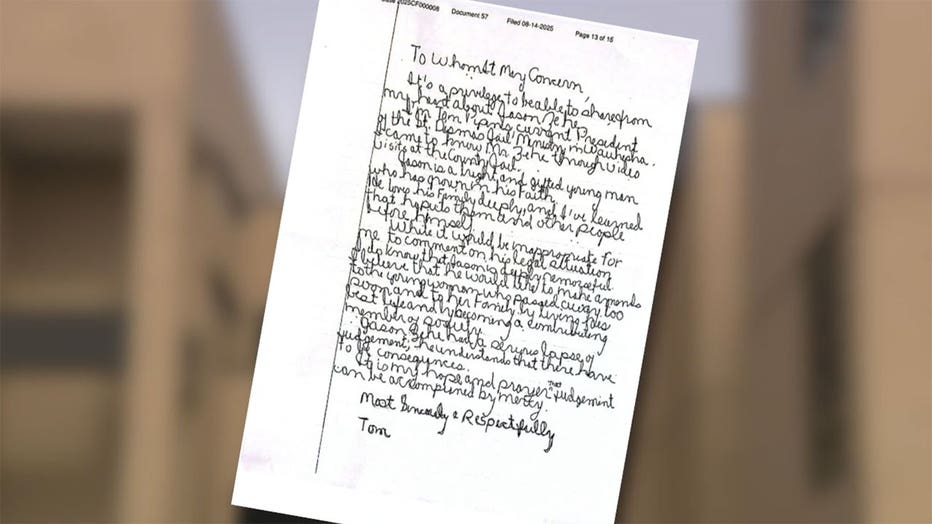 Case 2025CF000008 Document 57 Filed 08-14-2025 Page 13 of 15
To Whom It May Concern,
It's a privilege to be able to share from
my heart about Jason Zehe.
I'm Tom Pipines, current President
of the St. Dismas Jail Ministry in Waukesha.
I came to know Mr. Zehe through video
visits at the County Jail.
Jason is a bright and gifted young man
who has grown in his Faith.
He loves his Family deeply, and I've learned
that he puts them and other people
before himself.
While it would be inappropriate for
me to comment on his legal situation
I do know that Jason is deeply remorseful
I believe that he would like to make amends
to the young woman who passed away too
soon and to her Family by living his
best life and by becoming a contributing
member of society.
Jason Zehe had a serious lapse of
judgement, he understands that there have
to be consequences.
It is my hope and prayer that judgement
can be accomplished by mercy.
Most Sincerely & Respectfully
Tom